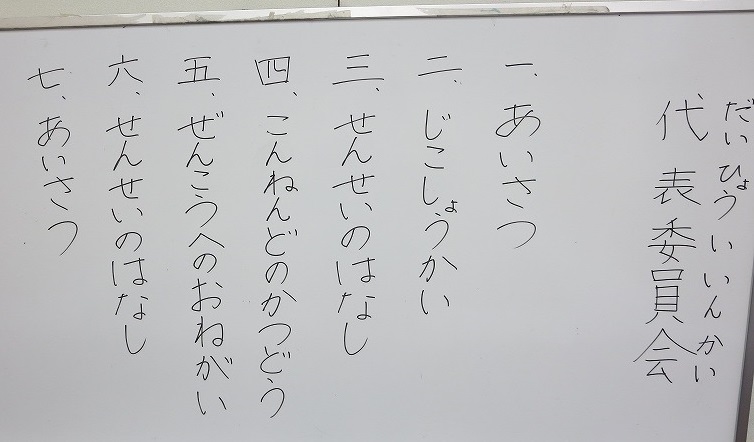 だいひょういいんかい
代表委員会
一、あいさつ
二、じこしょうかい
三、せんせいのはなし
四、こんねんどのかつどう
五、ぜんこうへのおねがい
六、せんせいのはなし
七、あいさつ